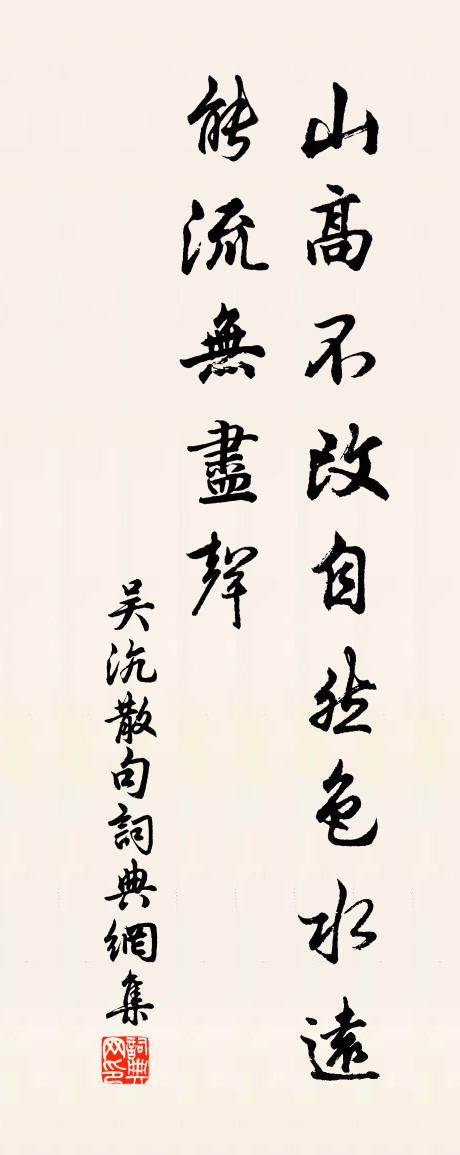 山高不改自然色水遠
能流無盡聲
吴沆散句詞典網集
詞典网印